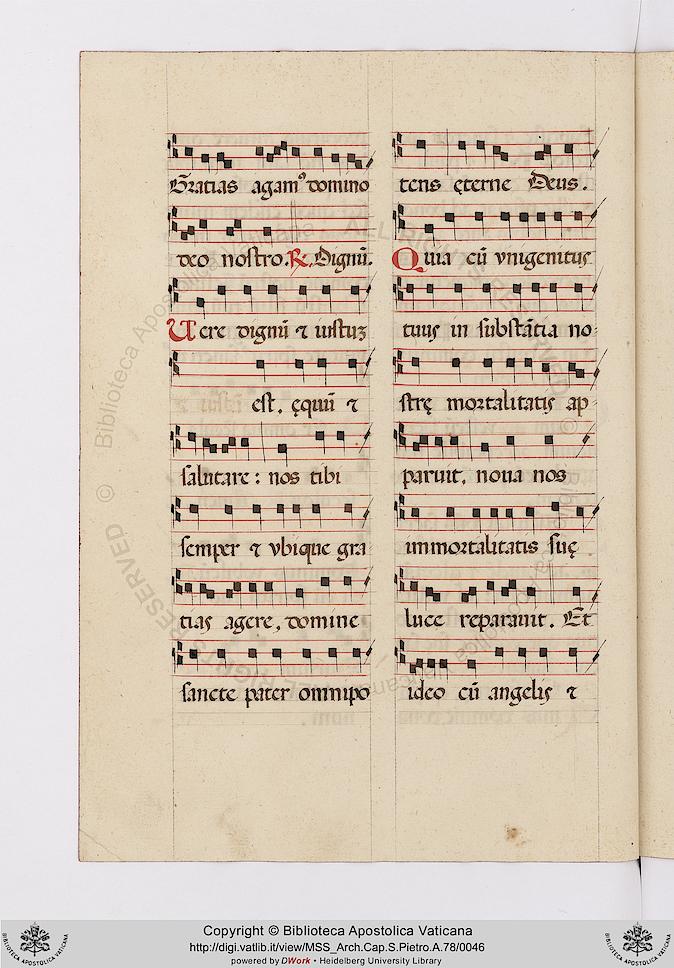 Gratias agamꝰ domino
deo nostro. ℟. Dignũ.
Uere dignũ ⁊ iustuꝫ
est. ęquũ ⁊
salutare: nos tibi
semper ⁊ vbique gra
tias agere, domine
sancte pater omnipo
tens ęterne Deus.
Quia cũ vnigenitus
tuus in substãtia no-
strę mortalitatis ap
paruit. noua nos
immortalitatis suę.
luce reparauit. Et
ideo cũ angelis ⁊
© Biblioteca Apostolica Vaticana ALL RIGHTS RESERVED
Copyright © Biblioteca Apostolica Vaticana
http://digi.vatlib.it/view/MSS_Arch.Cap.S.Pietro.A.78/0046
powered by DWork • Heidelberg University Library
BIBLIOTECA APOSTOLICA VATICANA
BIBLIOTECA APOSTOLICA VATICANA